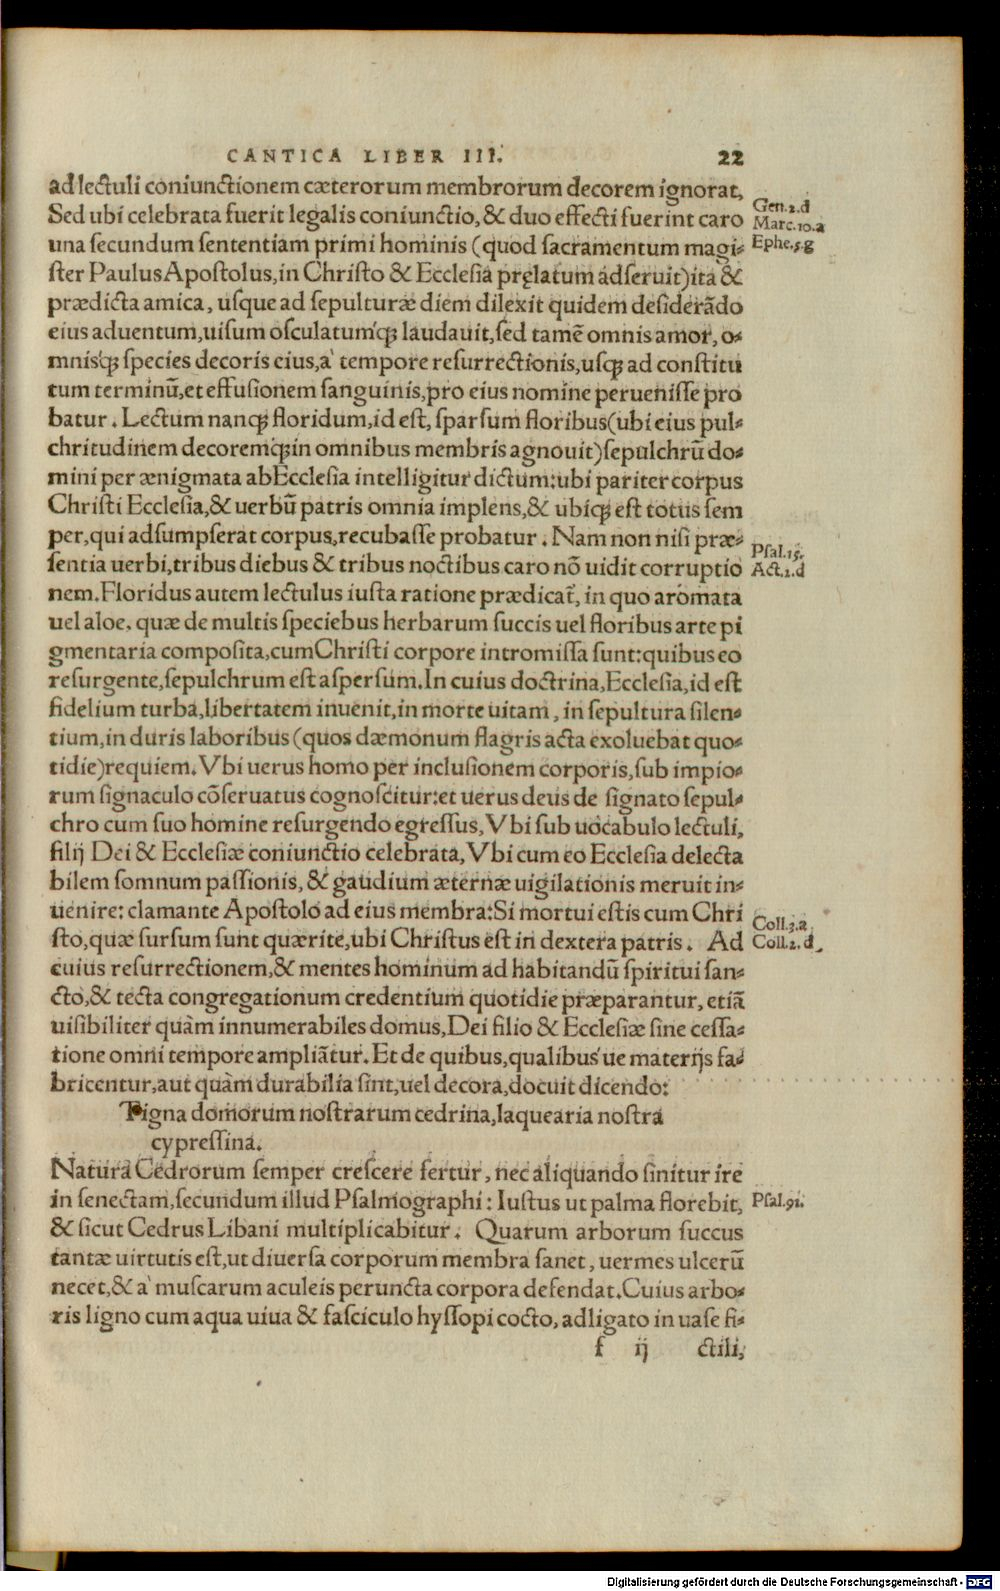 CANTICA LIBER III. 22
ad lectuli coniunctionem cæterorum membrorum decorem ignorat,
Sed ubi celebrata fuerit legalis coniunctio, & duo effecti fuerint caro
Gen.2.d
Marc.10.a
una secundum sententiam primi hominis (quod sacramentum magi-
Ephe.5.g
ster Paulus Apostolus, in Christo & Ecclesia pręlatum adseruit) ita &
prædicta amica, usque ad sepulturæ diem dilexit quidem desiderādo
eius aduentum, uisum osculatumq́ꝫ laudauit, sed tamē omnis amor, o-
mnisq́ꝫ species decoris eius, à tempore resurrectionis, usqꝫ ad constitu
tum terminū, et effusionem sanguinis, pro eius nomine peruenisse pro
batur. Lectum nanqꝫ floridum, id est, sparsum floribus (ubi eius pul-
chritudinem decoremq́ꝫ in omnibus membris agnouit) sepulchrū do-
mini per ænigmata ab Ecclesia intelligitur dictum: ubi pariter corpus
Christi Ecclesia, & uerbū patris omnia implens, & ubiqꝫ est totus sem
per, qui adsumpserat corpus, recubasse probatur. Nam non nisi præ-
Psal.15.
sentia uerbi, tribus diebus & tribus noctibus caro nō uidit corruptio
Act.2.d
nem. Floridus autem lectulus iusta ratione prædicat̄, in quo aromata
uel aloe, quæ de multis speciebus herbarum succis uel floribus arte pi
gmentaria composita, cum Christi corpore intromissa sunt: quibus eo
resurgente, sepulchrum est aspersum. In cuius doctrina, Ecclesia, id est
fidelium turba, libertatem inuenit, in morte uitam, in sepultura silen-
tium, in duris laboribus (quos dæmonum flagris acta exoluebat quo-
tidie) requiem. Vbi uerus homo per inclusionem corporis, sub impio-
rum signaculo cōseruatus cognoscitur: et uerus deus de signato sepul-
chro cum suo homine resurgendo egressus, Vbi sub uocabulo lectuli,
filij Dei & Ecclesiæ coniunctio celebrata, Vbi cum eo Ecclesia delecta
bilem somnum passionis, & gaudium æternæ uigilationis meruit in-
uenire: clamante Apostolo ad eius membra: Si mortui estis cum Chri
Coll.3.a
sto, quæ sursum sunt quærite, ubi Christus est in dextera patris. Ad
Coll.2.d
cuius resurrectionem, & mentes hominum ad habitandū spiritui san-
cto, & tecta congregationum credentium quotidie præparantur, etiā
uisibiliter quàm innumerabiles domus, Dei filio & Ecclesiæ sine cessa-
tione omni tempore ampliātur. Et de quibus, qualibus ue materijs fa-
bricentur, aut quàm durabilia sint, uel decora, docuit dicendo:
Tigna domorum nostrarum cedrina, laquearia nostra
cypressina.
Natura Cedrorum semper crescere fertur, nec aliquando sinitur ire
in senectam, secundum illud Psalmographi: Iustus ut palma florebit,
Psal.91.
& sicut Cedrus Libani multiplicabitur. Quarum arborum succus
tantæ uirtutis est, ut diuersa corporum membra sanet, uermes ulcerū
necet, & à muscarum aculeis peruncta corpora defendat. Cuius arbo-
ris ligno cum aqua uiua & fasciculo hyssopi cocto, adligato in uase fi-
f ij ctili,
Digitalisierung gefördert durch die Deutsche Forschungsgemeinschaft - DFG